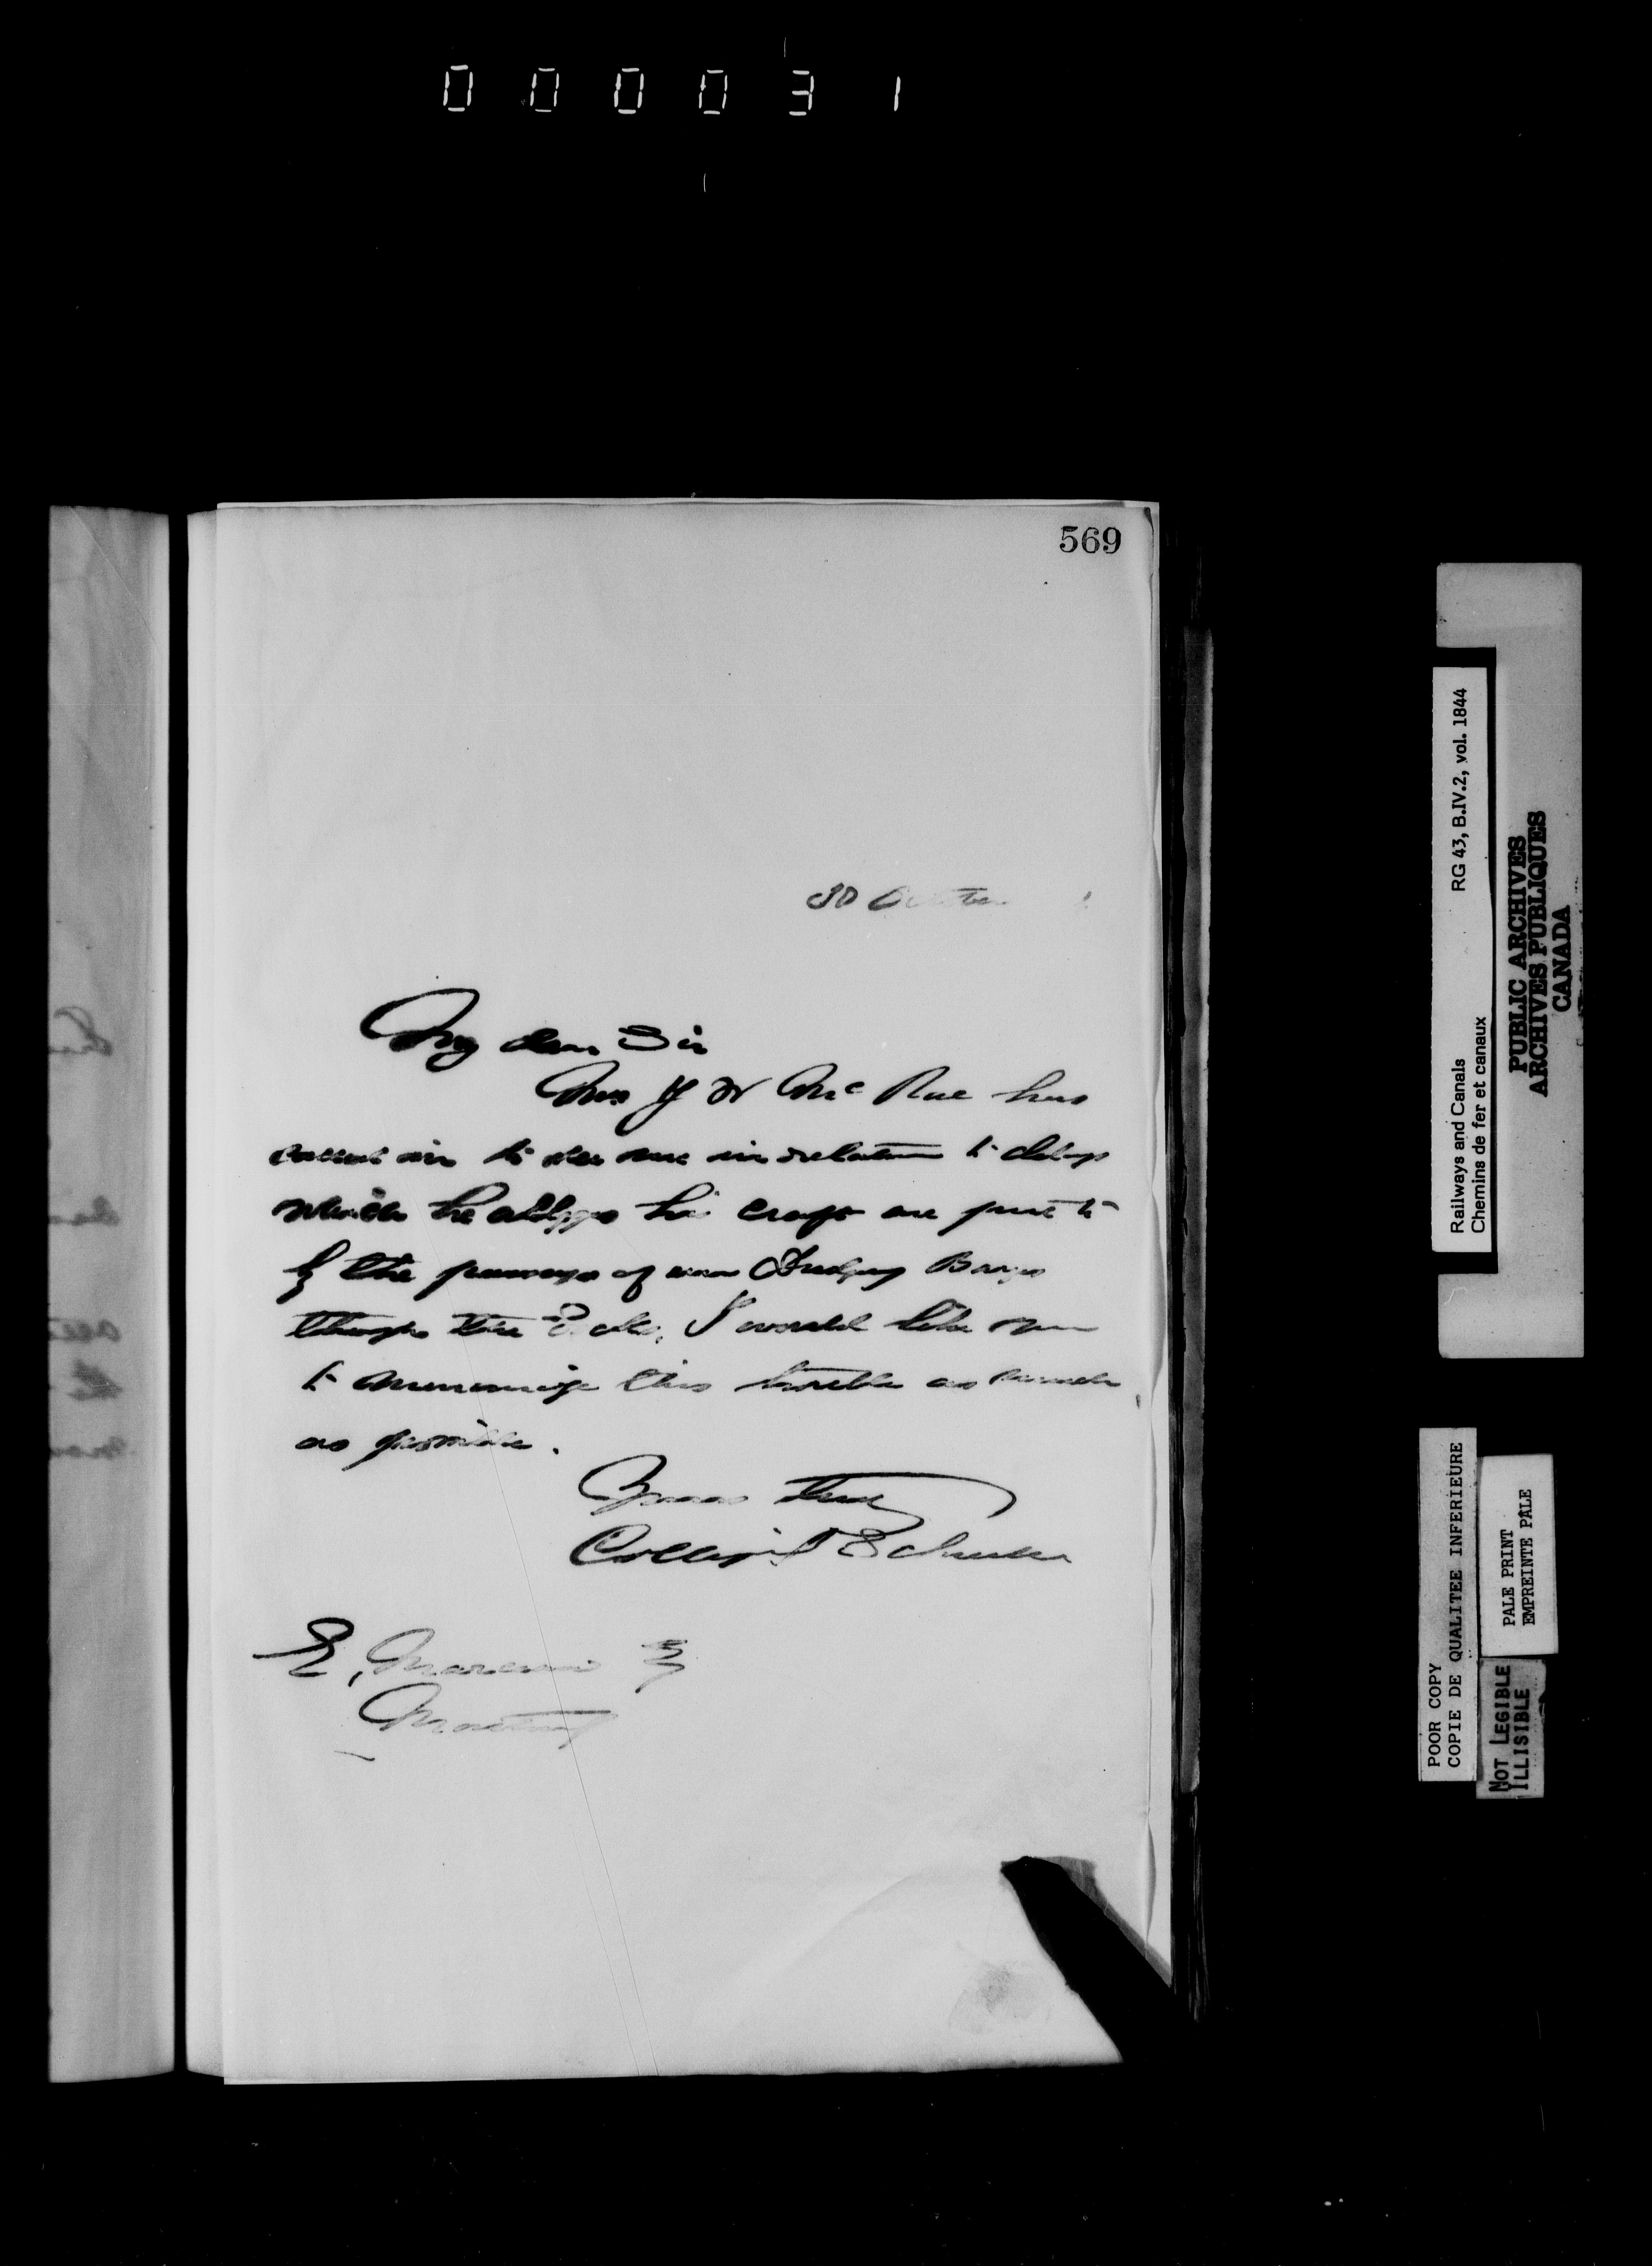 000031
569
30 October
My dear Sir
Mr J W McRae has
called in to see me in relation to delays
which he alleges his crafts are put to
by the passage of our Dredging Barges
through the Locks, I would like you
to minimize this trouble as much
as possible.
Yours Truly
Collingwood Schreiber
E, Marceau Esq
Montreal
Railways and Canals RG 43, B.IV.2, vol. 1844
Chemins de fer et canaux
PUBLIC ARCHIVES
ARCHIVES PUBLIQUES
CANADA
POOR COPY
COPIE DE QUALITEE INFERIEURE
PALE PRINT
EMPREINTE PÂLE
NOT LEGIBLE
ILLISIBLE